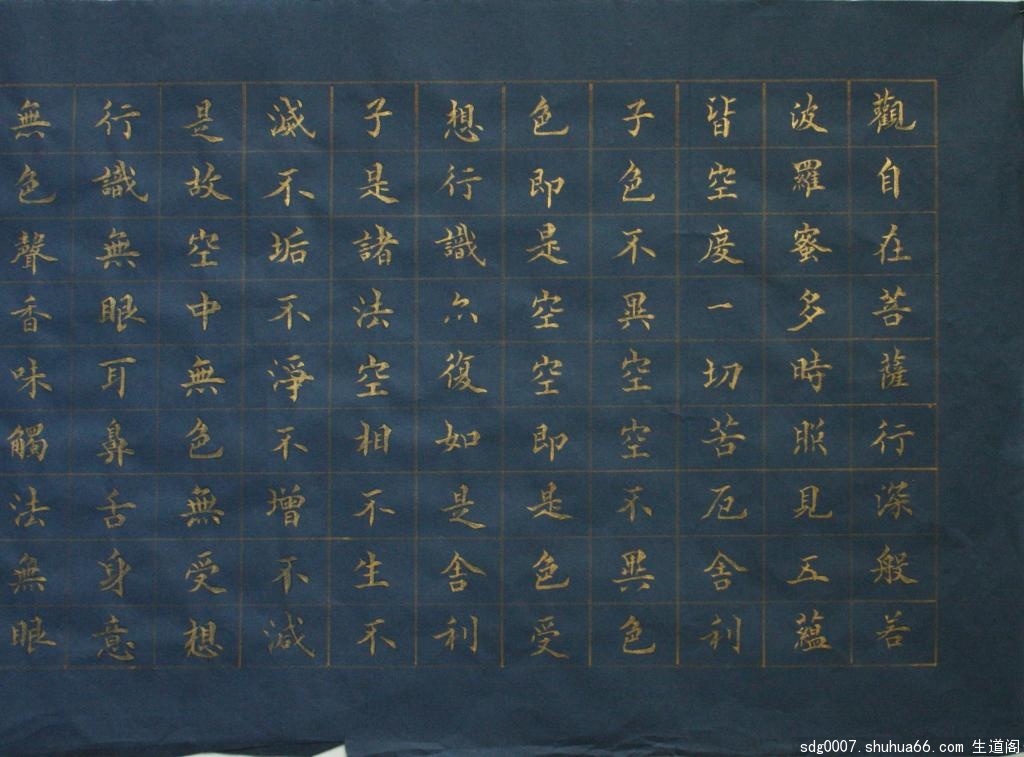 觀自在菩薩行深般若
波羅蜜多時照見五蘊
皆空度一切苦厄舍利
子色不異空空不異色
色即是空空即是色受
想行識亦復如是舍利
子是諸法空相不生不
滅不垢不淨不增不減
是故空中無色無受想
行識無眼耳鼻舌身意
無色聲香味觸法無眼
sdg0007.shuhua66.com 生道阁